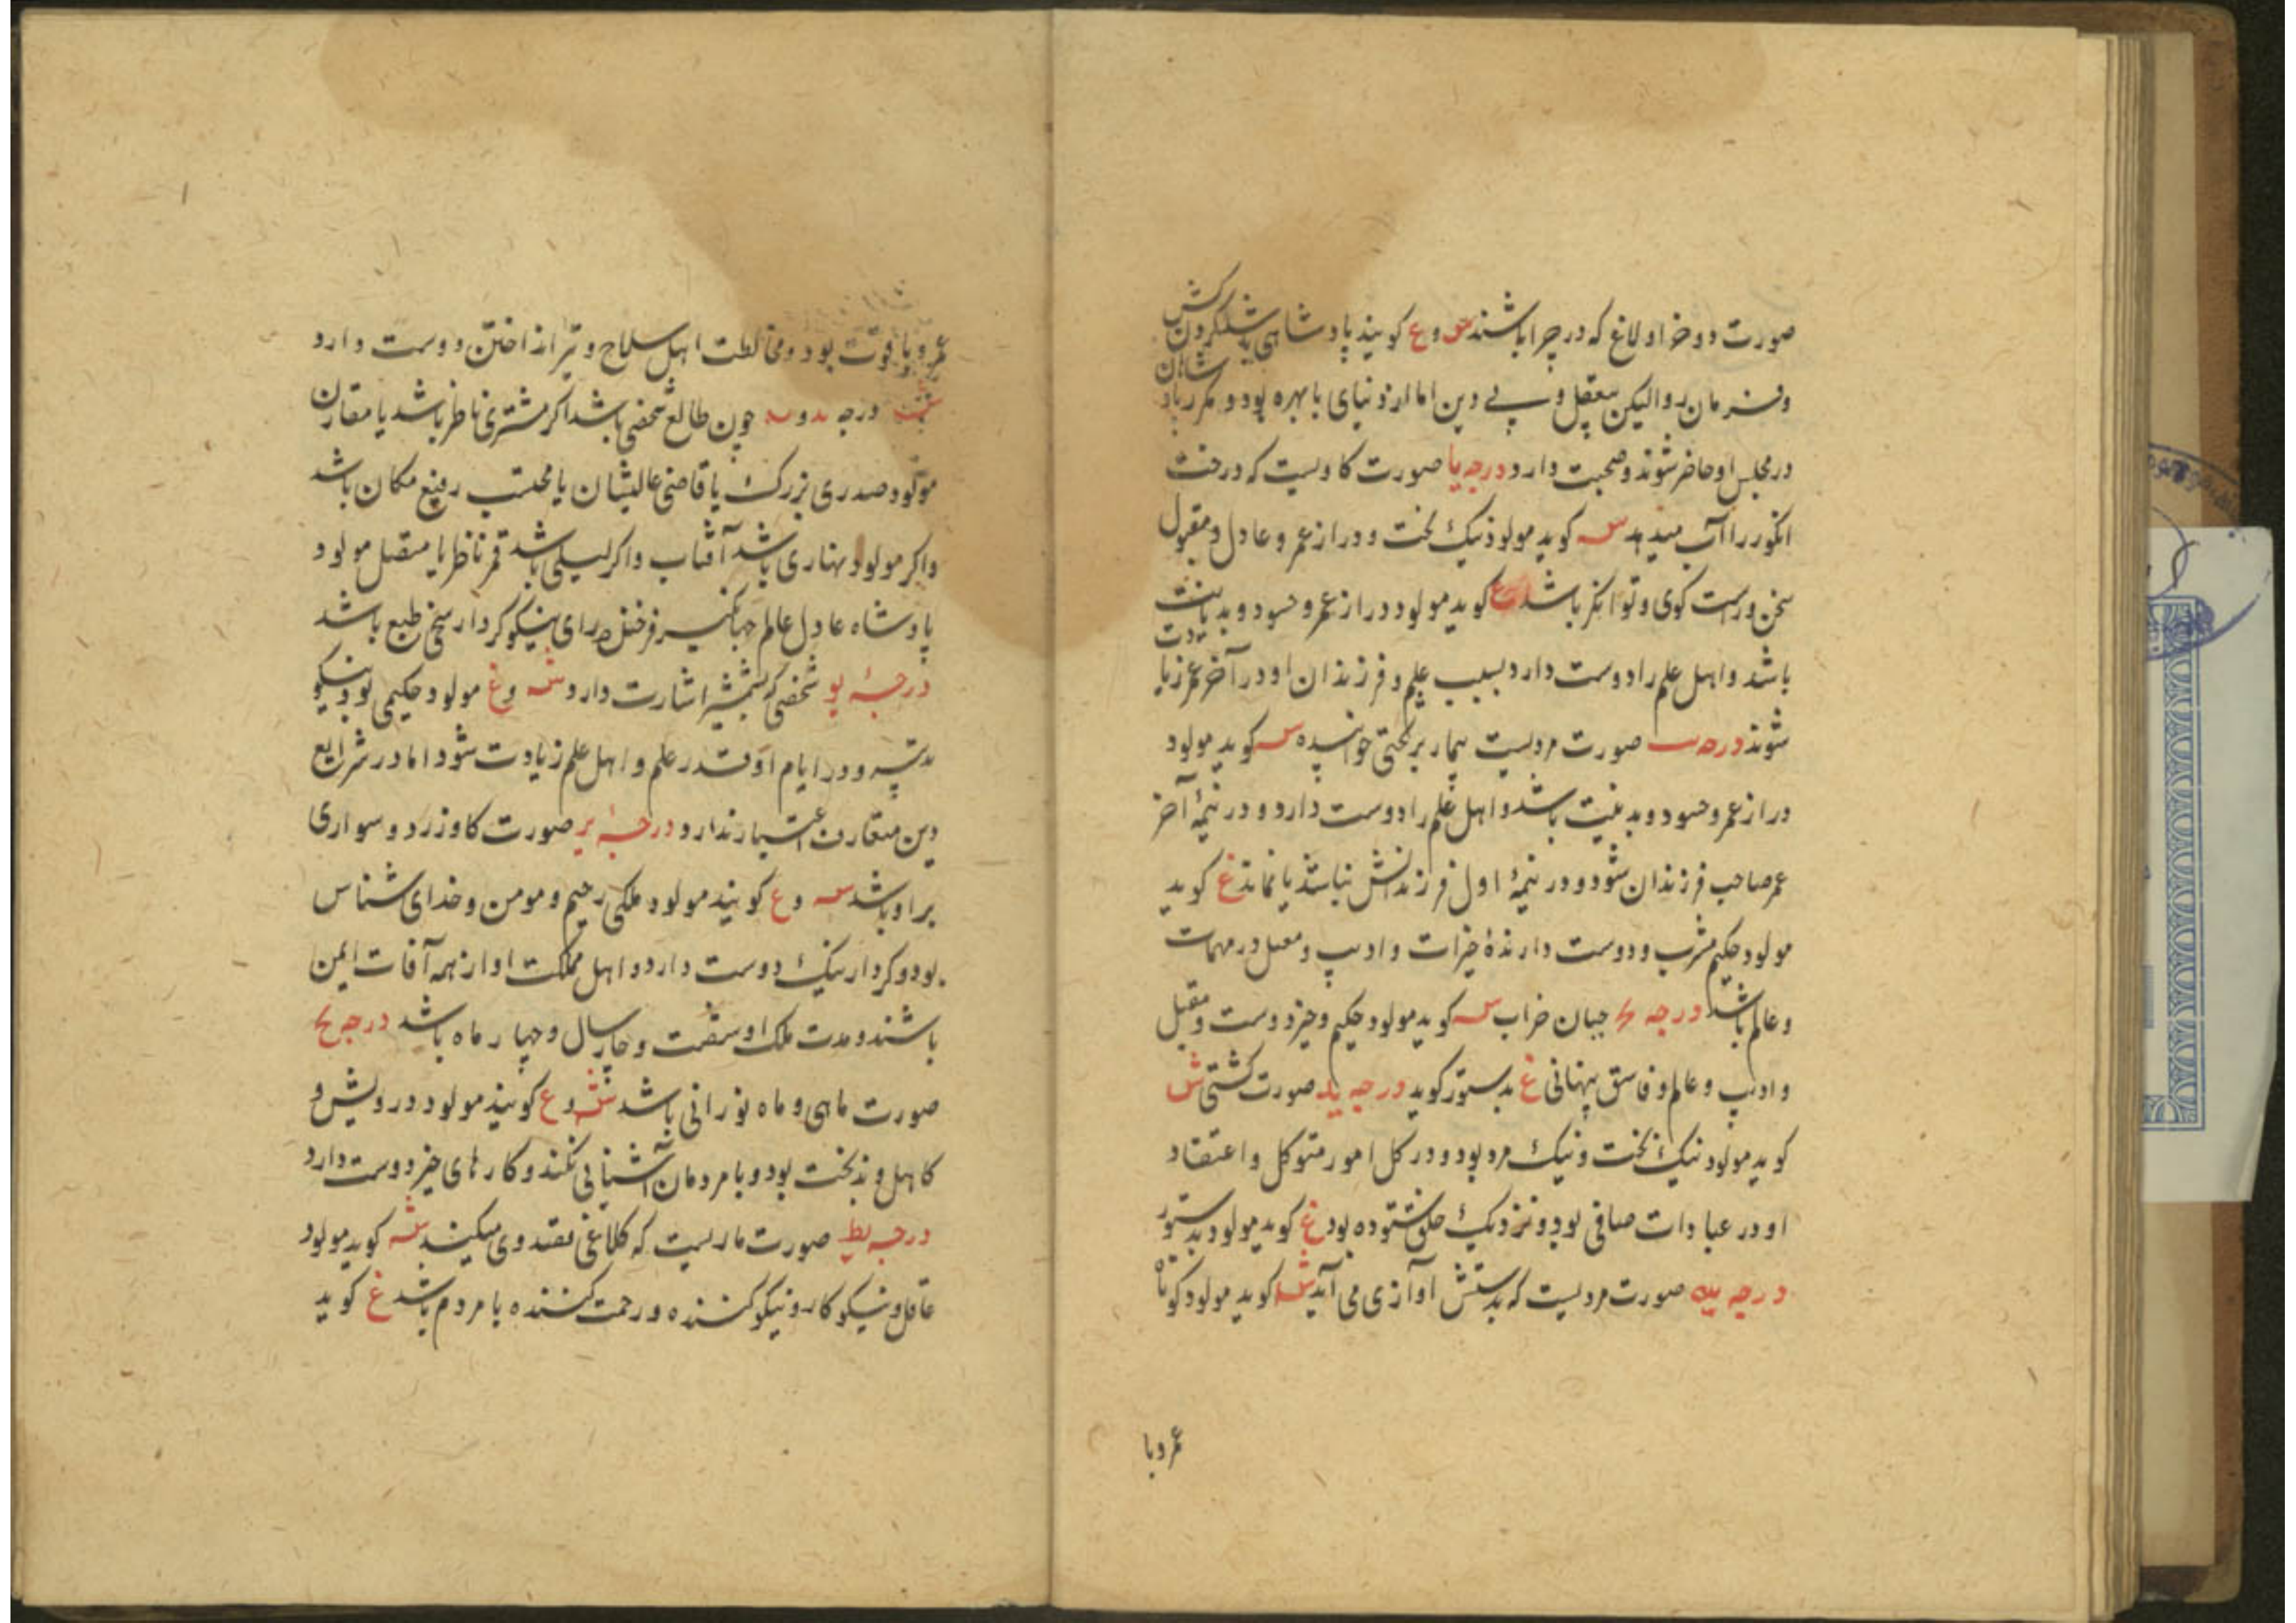 صورت دو خر اولاغ که در چرا باشند ش و ع کویند پادشاهی شکرکش
و فرمان روا لیکن بیعقل و بی دین اما از دنیای با بهره بود و مکرر
در مجلس او حاضر شوند و صحبت دارد درجه یا صورت کاویست که درخت
انکور را آب میدهد س کوید مولود نیک بخت و دراز عمر و عادل و مقبول
سخن و راست کوی و توانکر باشد ع کوید مولود دراز عمر و حسود و بد
باشد و اهل علم را دوست دارد بسبب علم و فرزندان او در آخر عمر
شوند درجه یب صورت مردیست بیمار بر تختی خوابیده س کوید مولود
دراز عمر و حسود و بد نیت باشد و اهل علم را دوست دارد و در نیمهٔ آخر
عمر صاحب فرزندان شود و در نیمهٔ اول فرزندانش نباشد یا نماند غ کوید
مولود حکیم مشرب و دوست دارندهٔ خیرات و ادیب و در مهمات
و عالم باشد درجه یج جبان خراب س کوید مولود حکیم و خیر دوست و مقبل
و ادیب و عالم و فاسق پنهانی غ بدستور کوید درجه ید صورت کشتی ش
کوید مولود نیک بخت و نیک مرد بود و در کل امور متوکل و اعتقاد
او در عبادات صافی بود و نزدیک خلق ستوده بود غ کوید مولود بدستور
درجه یه صورت مردیست که بدستش اوازی می آید ش کوید مولود کوتاه
عمر و با
عمر و با قوت بود و مخالطت اهل سلاح و تیر انداختن دوست دارد
درجه چون طالع شخصی باشد اکر مشتری ناظر باشد یا مقارن
مولود صدری بزرک یا قاضی عالیشان یا محتسب رفیع مکان باشد
و اکر مولود نهاری باشد آفتاب و اکر لیلی باشد قمر ناظر یا متصل مولود
پادشاه عادل عالم جهانکیر فرخنده رای نیکو کردار سخی طبع باشد
درجهٔ یو شخصی که بشمشیر اشارت دارد ش و غ مولود حکیمی بود نیکو
تدبیر و در ایام او قدر علم و اهل علم زیادت شود اما در شرایع
دین متعارف اعتبار ندارد درجهٔ یز صورت کاو زرد و سواری
بر او باشد س و ع کویند مولود ملکی رحیم و مومن و خدای شناس
بود و کردار نیک دوست دارد و اهل مملکت او از همه آفات ایمن
باشند و مدت ملک او شصت و چار سال و چهار ماه باشد درجه یح
صورت ماهی و ماه نورانی باشد ش و ع کویند مولود درویش و
کاهل و بدبخت بود و با مردمان آشنایی نکند و کارهای خیر دوست دارد
درجه یط صورت ماریست که کلاغی قصد وی میکند ش کوید مولود
عاقل و نیکو کار و نیکو کننده و رحمت کننده با مردم باشد غ کوید